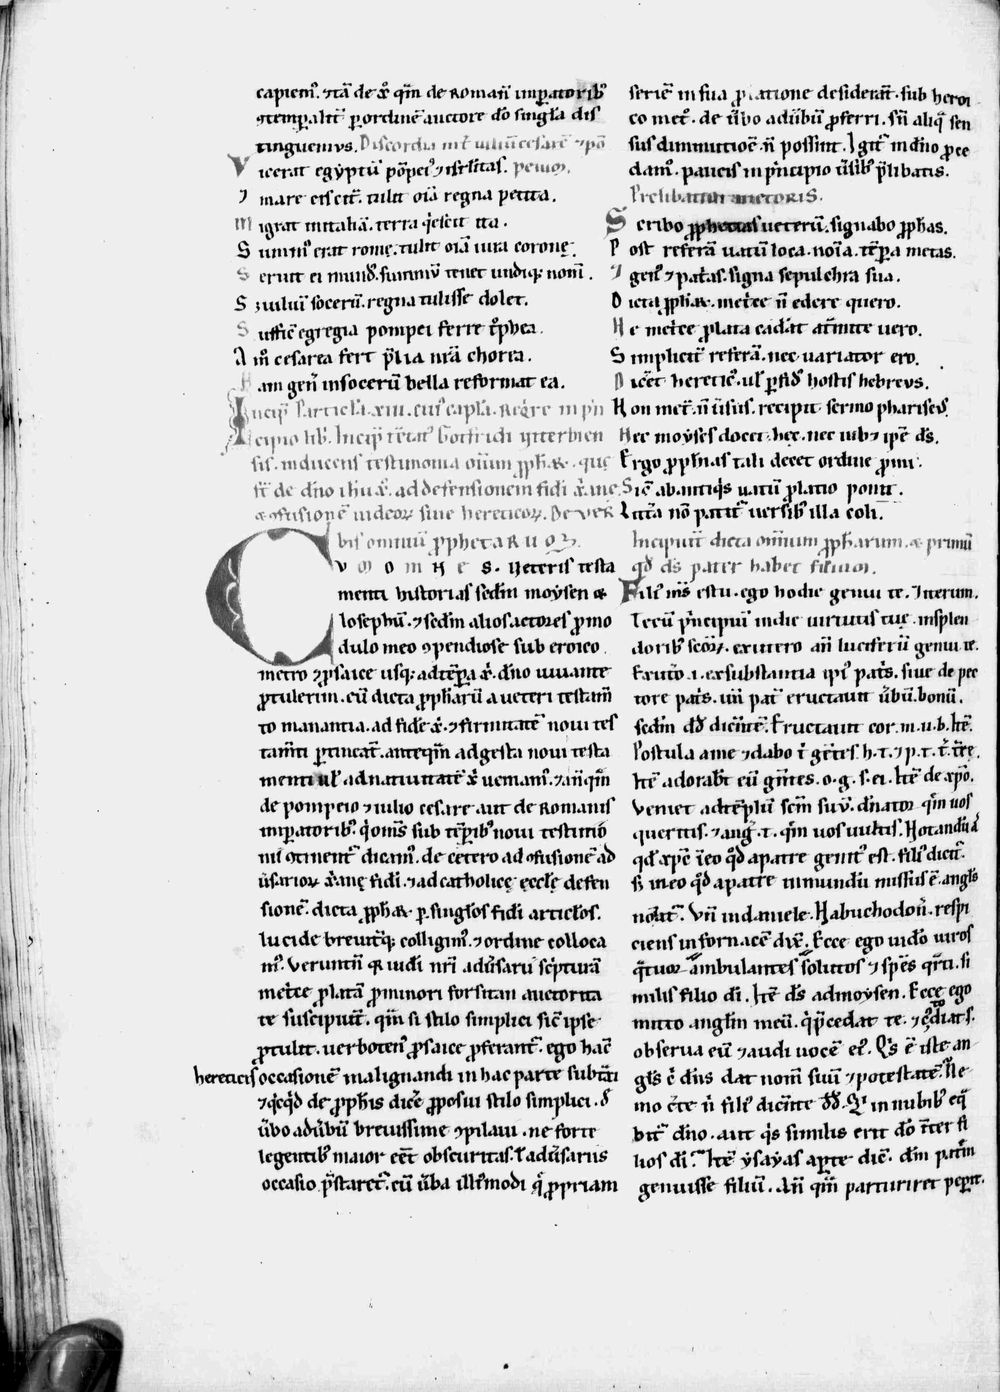 capiem⁹. ⁊ tā de x̄. qm̄ de Romanis impatorib⁹
⁊temꝑalit̄ ꝑ ordinē auctore dō singl̄a dis
tinguemvs. Discordia int̄ iuliū cesarē ⁊ pō
Vicerat egyptū pōpei⁹ ⁊ isrl̄itas. peium.
I mare eiscit. tulit oīa regna petita.
Migrat in italiā. terra q̇escit ita.
Summ⁹ erat rome. tulit oīa iura corone.
Seruit ei mund⁹. summū tenet undiq; nom̄.
S; iuliū socerū. regna tulisse dolet.
Suffic̄ egregia pompei ferre tⁱphea.
Am̄ cesarea fert p̄lia nr̄a chorea.
Nam gen̄ in socerū bella reformat ea.
Incip̄ Particl̄a .xiii. cui⁹ capl̄a. Reqⁱre in pⁱn
cipio libⁱ. Incip̄ t̄tat⁹ Gotfridi viterbien
sis. inducens testimonia oīum ꝓph̄aꝝ. que
st̄ de dn̄o ih̄u x̄. ad defensionem fidei x̄ane
⁊ ꝯfusionē iudeoꝝ siue hereticoꝝ. De ver
bis omniū ꝓphetaruꝫ.
CVM OMNES. veteris testa
menti historias sc̄dm moysen ⁊
Iosephū. ⁊ sc̄dm alios actores ꝓ mo
dulo meo ꝯpendiose sub eroico
metro ⁊ ꝓsaice usq; ad tēpa x̄. dn̄o iuuante
ꝓtulerim. cū dicta ꝓph̄arū a ueteri testam̄
to manantia. ad fidē x̄. ⁊ firmitatē noui tes
tam̄ti ꝑtineat. anteqm̄ ad gesta noui testa
menti ul̄ ad natiuitatē x̄ ueniam⁹. ⁊ an̄qm̄
de pompeio ⁊ iulio cesare aut de Romanis
imꝑatorib⁹. qⁱ om̄s sub tēpib⁹ noui testim̄o
nii ꝯtinent̄ dicam⁹. de cetero ad ꝯfusionē ad
ūsarioꝝ x̄ane fidei. ⁊ ad catholice eccl̄e defen
sionē. dicta ꝓph̄aꝝ ꝑ singl̄os fidei articl̄os.
lucide breuit̄q; colligim⁹. ⁊ ordine colloca
m⁹. Verunt̄n q̄ iudei nr̄i adūsarii scⁱpturā
metⁱce ꝓlatā ꝓ minori forsitan auctorita
te suscipiūt. qm̄ si stilo simplici sic̄ ipse
ꝓtulit. uerboten⁹ ꝓsaice ꝓferant̄. ego hanc
hereticis occasionē malignandi in hac parte subtⁱxi
⁊ qⁱcqⁱd de ꝓphis dicē ꝓposui stilo simplici. d̄
ūbo ad ūbū breuissime ꝯpilaui. ne forte
legentib⁹ maior eēt obscuritas. ł adūsariis
occasio p̄staret̄. cū ūba illⁱ⁹modi qⁱ ꝓpriam
seriē in sua ꝓlatione desiderāt. sub heroi
co met̄. de ūbo ad ūbū ꝓferri. sn̄ aliq̄ sen
sus diminutiōe. n̄ possint. Igit̄ in dn̄o ꝓce
dam⁹. paucis in pⁱncipio ūsib⁹ p̄libatis.
Prelibatiu auctoris.
Scribo ꝓphetias ueterū. signabo ꝓph̄as.
Post referā uatū loca. noīa. tēpa metas.
I gen⁹ ⁊ pat̄as. signa sepulchra sua.
Dicta ꝓph̄aꝝ. metⁱce n̄ edere quero.
Ne metⁱce ꝓlata cadāt atm̄ite uero.
Simplicit̄ referā. nec uariator ero.
Dicēt heretic⁹. ul̄ ꝑfid⁹ hostis hebrevs.
Non met̄. n̄ ūsus. recipit sermo phariseus.
Nec moyses docet. hec. nec iub; ipē ds̄.
Ergo ꝓph̄ias tali decet ordine ꝓmi.
Sic̄ ab antiqⁱs uatū ꝓlatio ponit.
Litt̄a nō patit̄ uersib⁹ illa coli.
Incipiūt dicta omnium ꝓph̄arum. ⁊ primū
qd̄ ds̄ pater habet filium.
Fili⁹ m̄s es tu. ego hodie genui te. Iterum.
Tecū pⁱncipiū in die uirtutis tue. in splen
doribꝰ scōꝝ. ex utero an̄ luciferū genui te.
Ex utōo .i. ex substantia ipⁱ⁹ patⁱs. siue de pec
tore patⁱs. uñ pat̄ eructauit ūbū. bonū.
sc̄dm dd̄ dicn̄tē. Eructauit cor. m. u. b. Itē.
Postula a me ⁊ dabo t̄ gētes. h. t. ⁊ p. t. t̄. t̄re.
Itē adorabt̄ eū gētes. o. g. s. ei. Itē de xp̄o.
Veniet ad tēplū scm̄ suū. dn̄ator qm̄ uos
queritis. ⁊ ang. t. qm̄ uos uultis. Notandū ⁊
qd̄ xpc̄ iō qd̄ a patre genit⁹ est. fili⁹ dicit̄.
s; in eo qd̄ a patre in mundū missus ē. angl̄s
noīat̄. Vn̄ in daniele. Nabuchodon̄. respi
ciens in fornacē dix̄. Ecce ego uideo uiros
q̄tuor ambulantes solutos ⁊ spēs qrⁱti. si
milis filio dī. Itē ds̄ ad moysen. Ecce ego
mitto anglm̄ meū. qⁱ p̄cedat te. ⁊ custodiat s.
obserua eū ⁊ audi uocē ei⁹. Qⁱs ē iste an
gl̄s cⁱ dn̄s dat nom̄ suū ⁊ potestatē. Ne
mo cⁱte n̄ fili⁹ dicn̄te dd̄. Qⁱ in nubib⁹ eq̄
bit̄ dn̄o. aut qⁱs similis erit dō int̄ fi
lios dī. Itē ysayas aꝑte dic̄. dm̄ patrē
genuisse filiū. An̄ qm̄ parturiret peperit.